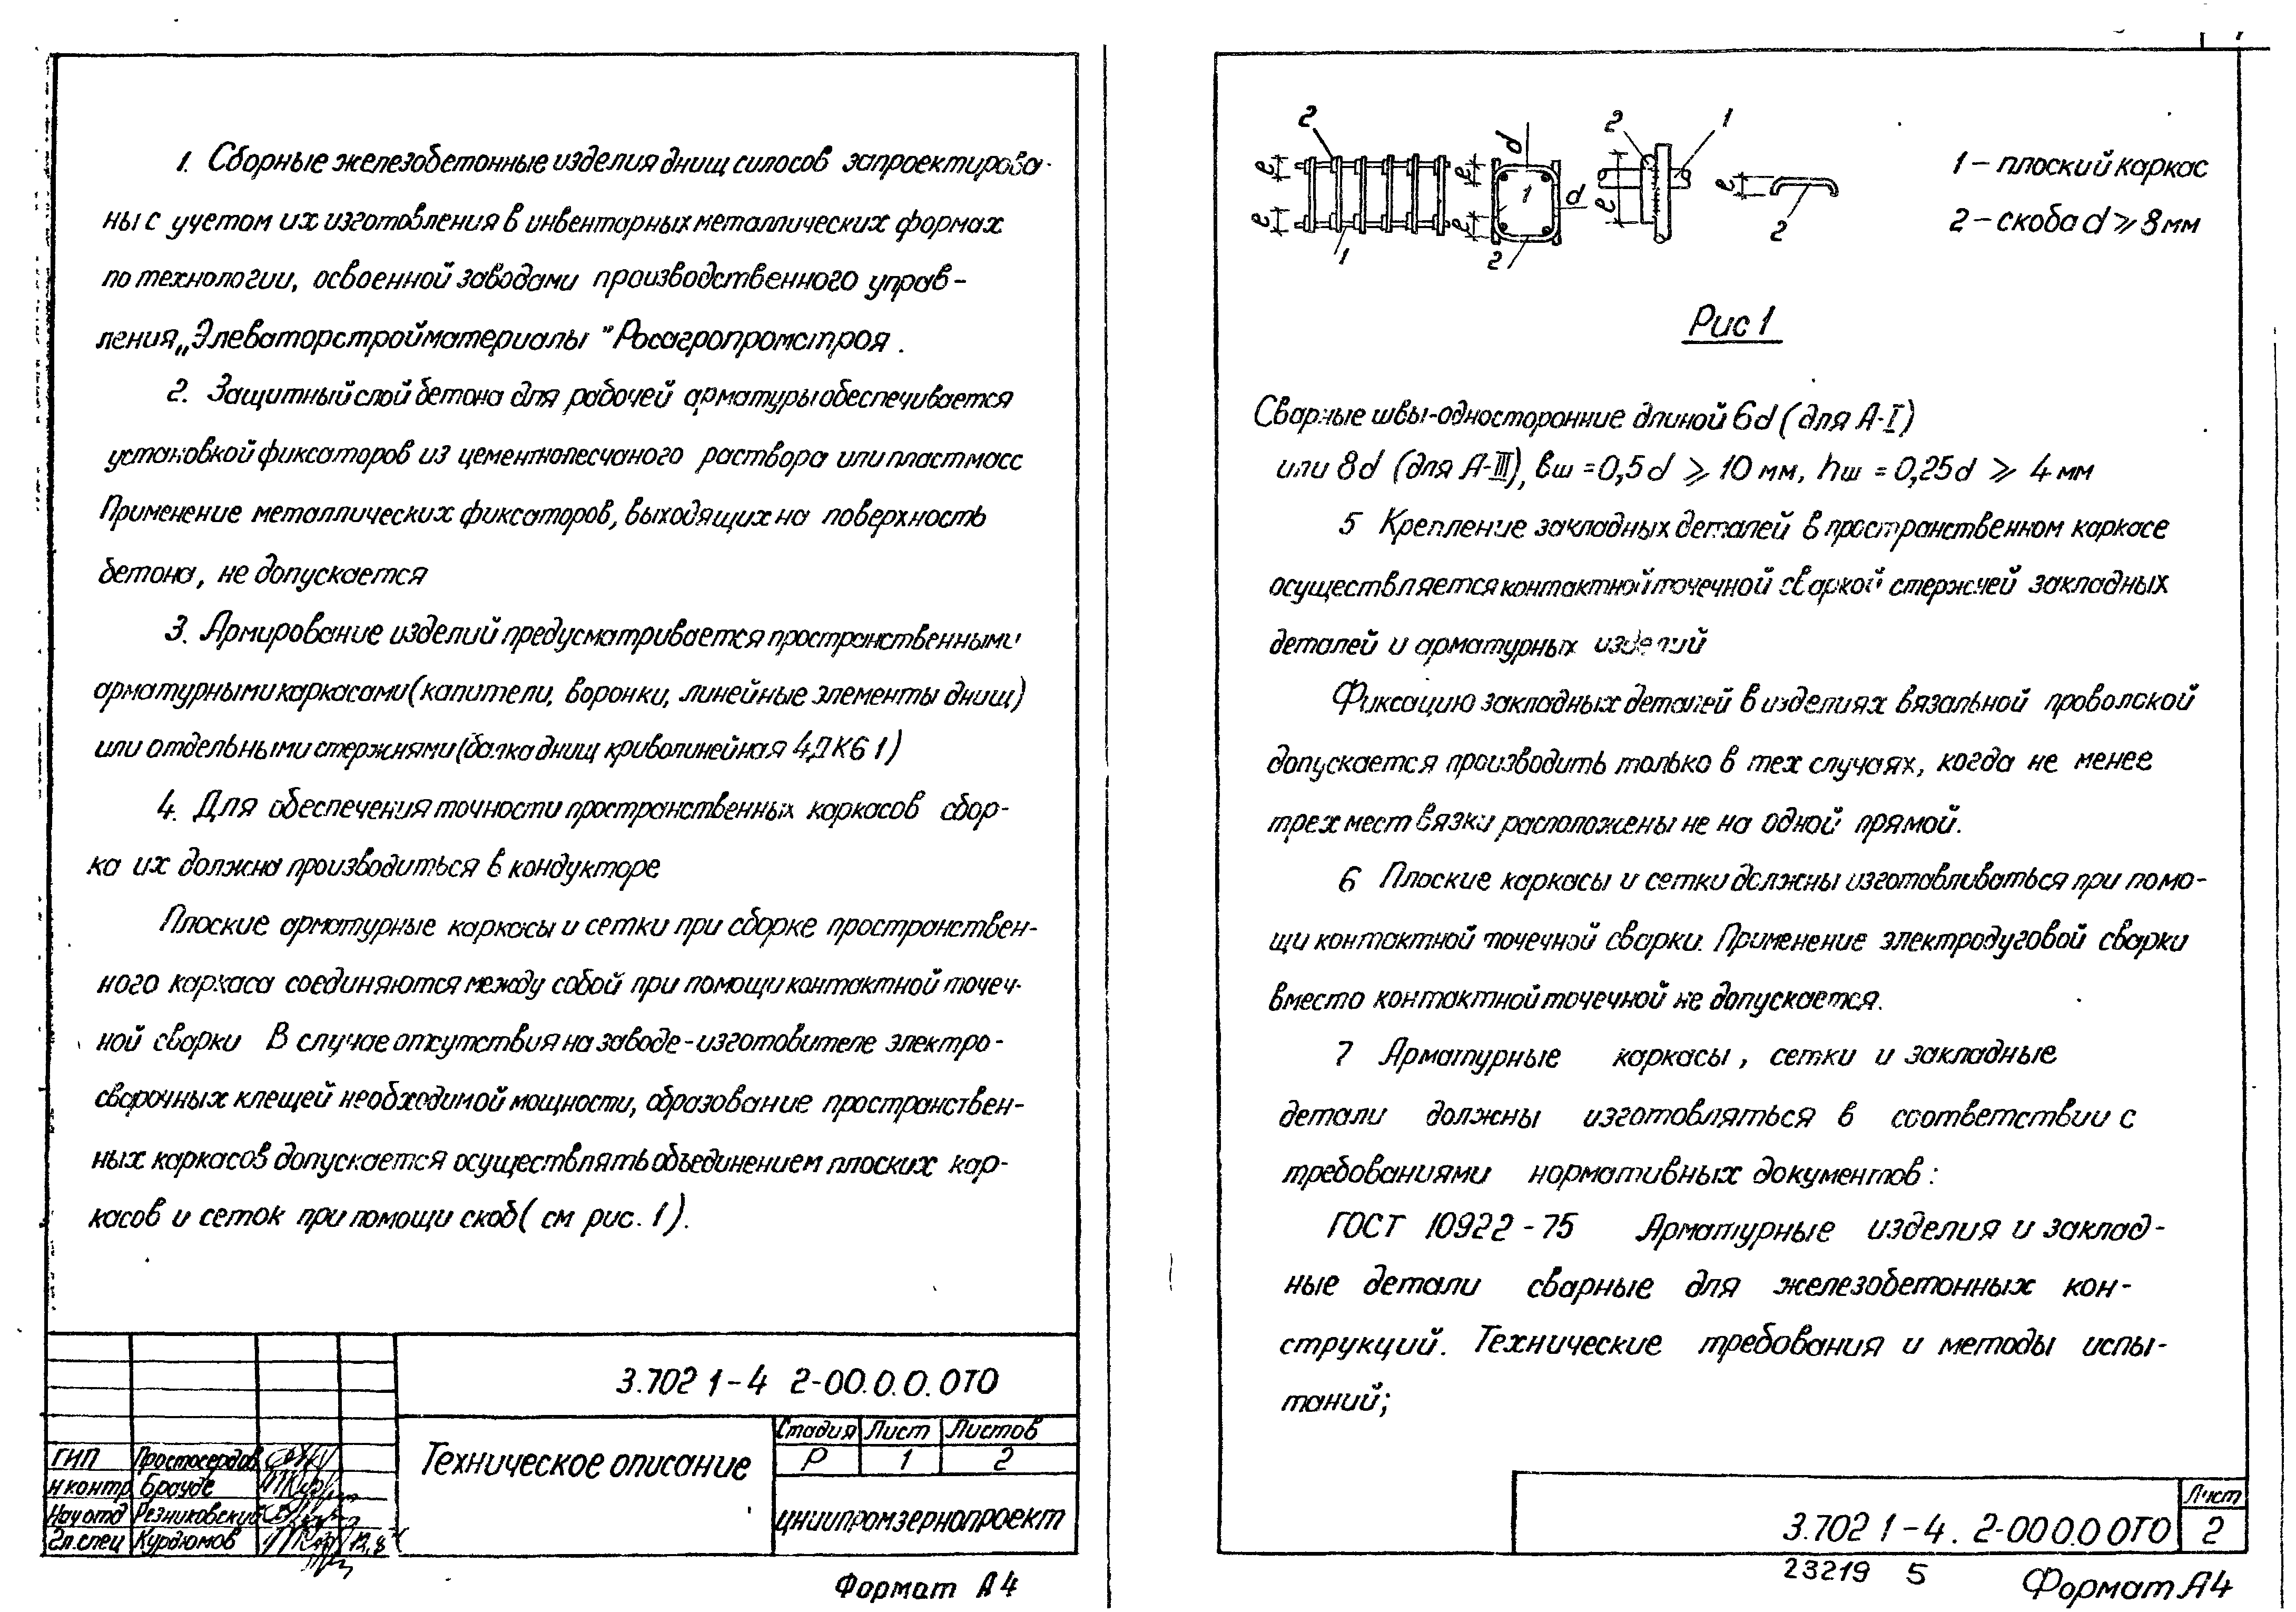 1. Сборные железобетонные изделия днищ силосов запроектирова-
ны с учетом их изготовления в инвентарных металлических формах
по технологии, освоенной заводами производственного управ-
ления „Элеваторстройматериалы" Росагропромстроя.
2. Защитный слой бетона для рабочей арматуры обеспечивается
установкой фиксаторов из цементнопесчаного раствора или пластмасс
Применение металлических фиксаторов, выходящих на поверхность
бетона, не допускается
3. Армирование изделий предусматривается пространственными
арматурными каркасами (капители, воронки, линейные элементы днищ)
или отдельными стержнями (балка днищ криволинейная 4ДК6 1)
4. Для обеспечения точности пространственных каркасов сбор-
ка их должна производиться в кондукторе
Плоские арматурные каркасы и сетки при сборке пространствен-
ного каркаса соединяются между собой при помощи контактной точеч-
ной сварки В случае отсутствия на заводе-изготовителе электро-
сварочных клещей необходимой мощности, образование пространствен-
ных каркасов допускается осуществлять объединением плоских кар-
касов и сеток при помощи скоб (см рис. 1).
3.702 1-4 2-00.0.0.0ТО
Техническое описание
Стадия Лист Листов
Р 1 2
ЦНИИПРОМЗЕРНОПРОЕКТ
ГИП Простосердов
Н контр Брауде
Нач отд Резниковский
Гл.спец Курдюмов
Формат А4
2 d 2 1
ℓ ℓ ℓ
1 d ℓ
ℓ ℓ
1 2 2
1 – плоский каркас
2 – скоба d ⩾ 8 мм
Рис 1
Сварные швы-односторонние длиной 6d (для А-I)
или 8d (для А-III), вш = 0,5d ⩾ 10 мм, hш = 0,25d ⩾ 4 мм
5 Крепление закладных деталей в пространственном каркасе
осуществляется контактной точечной сваркой стержней закладных
деталей и арматурных изделий
Фиксацию закладных деталей в изделиях вязальной проволокой
допускается производить только в тех случаях, когда не менее
трех мест вязки расположены не на одной прямой.
6 Плоские каркасы и сетки должны изготавливаться при помо-
щи контактной точечной сварки. Применение электродуговой сварки
вместо контактной точечной не допускается.
7 Арматурные каркасы, сетки и закладные
детали должны изготовляться в соответствии с
требованиями нормативных документов:
ГОСТ 10922-75 Арматурные изделия и заклад-
ные детали сварные для железобетонных кон-
струкций. Технические требования и методы испы-
таний;
3.702 1-4. 2-00 0.0 0ТО
Лист
2
23219 5
Формат А4